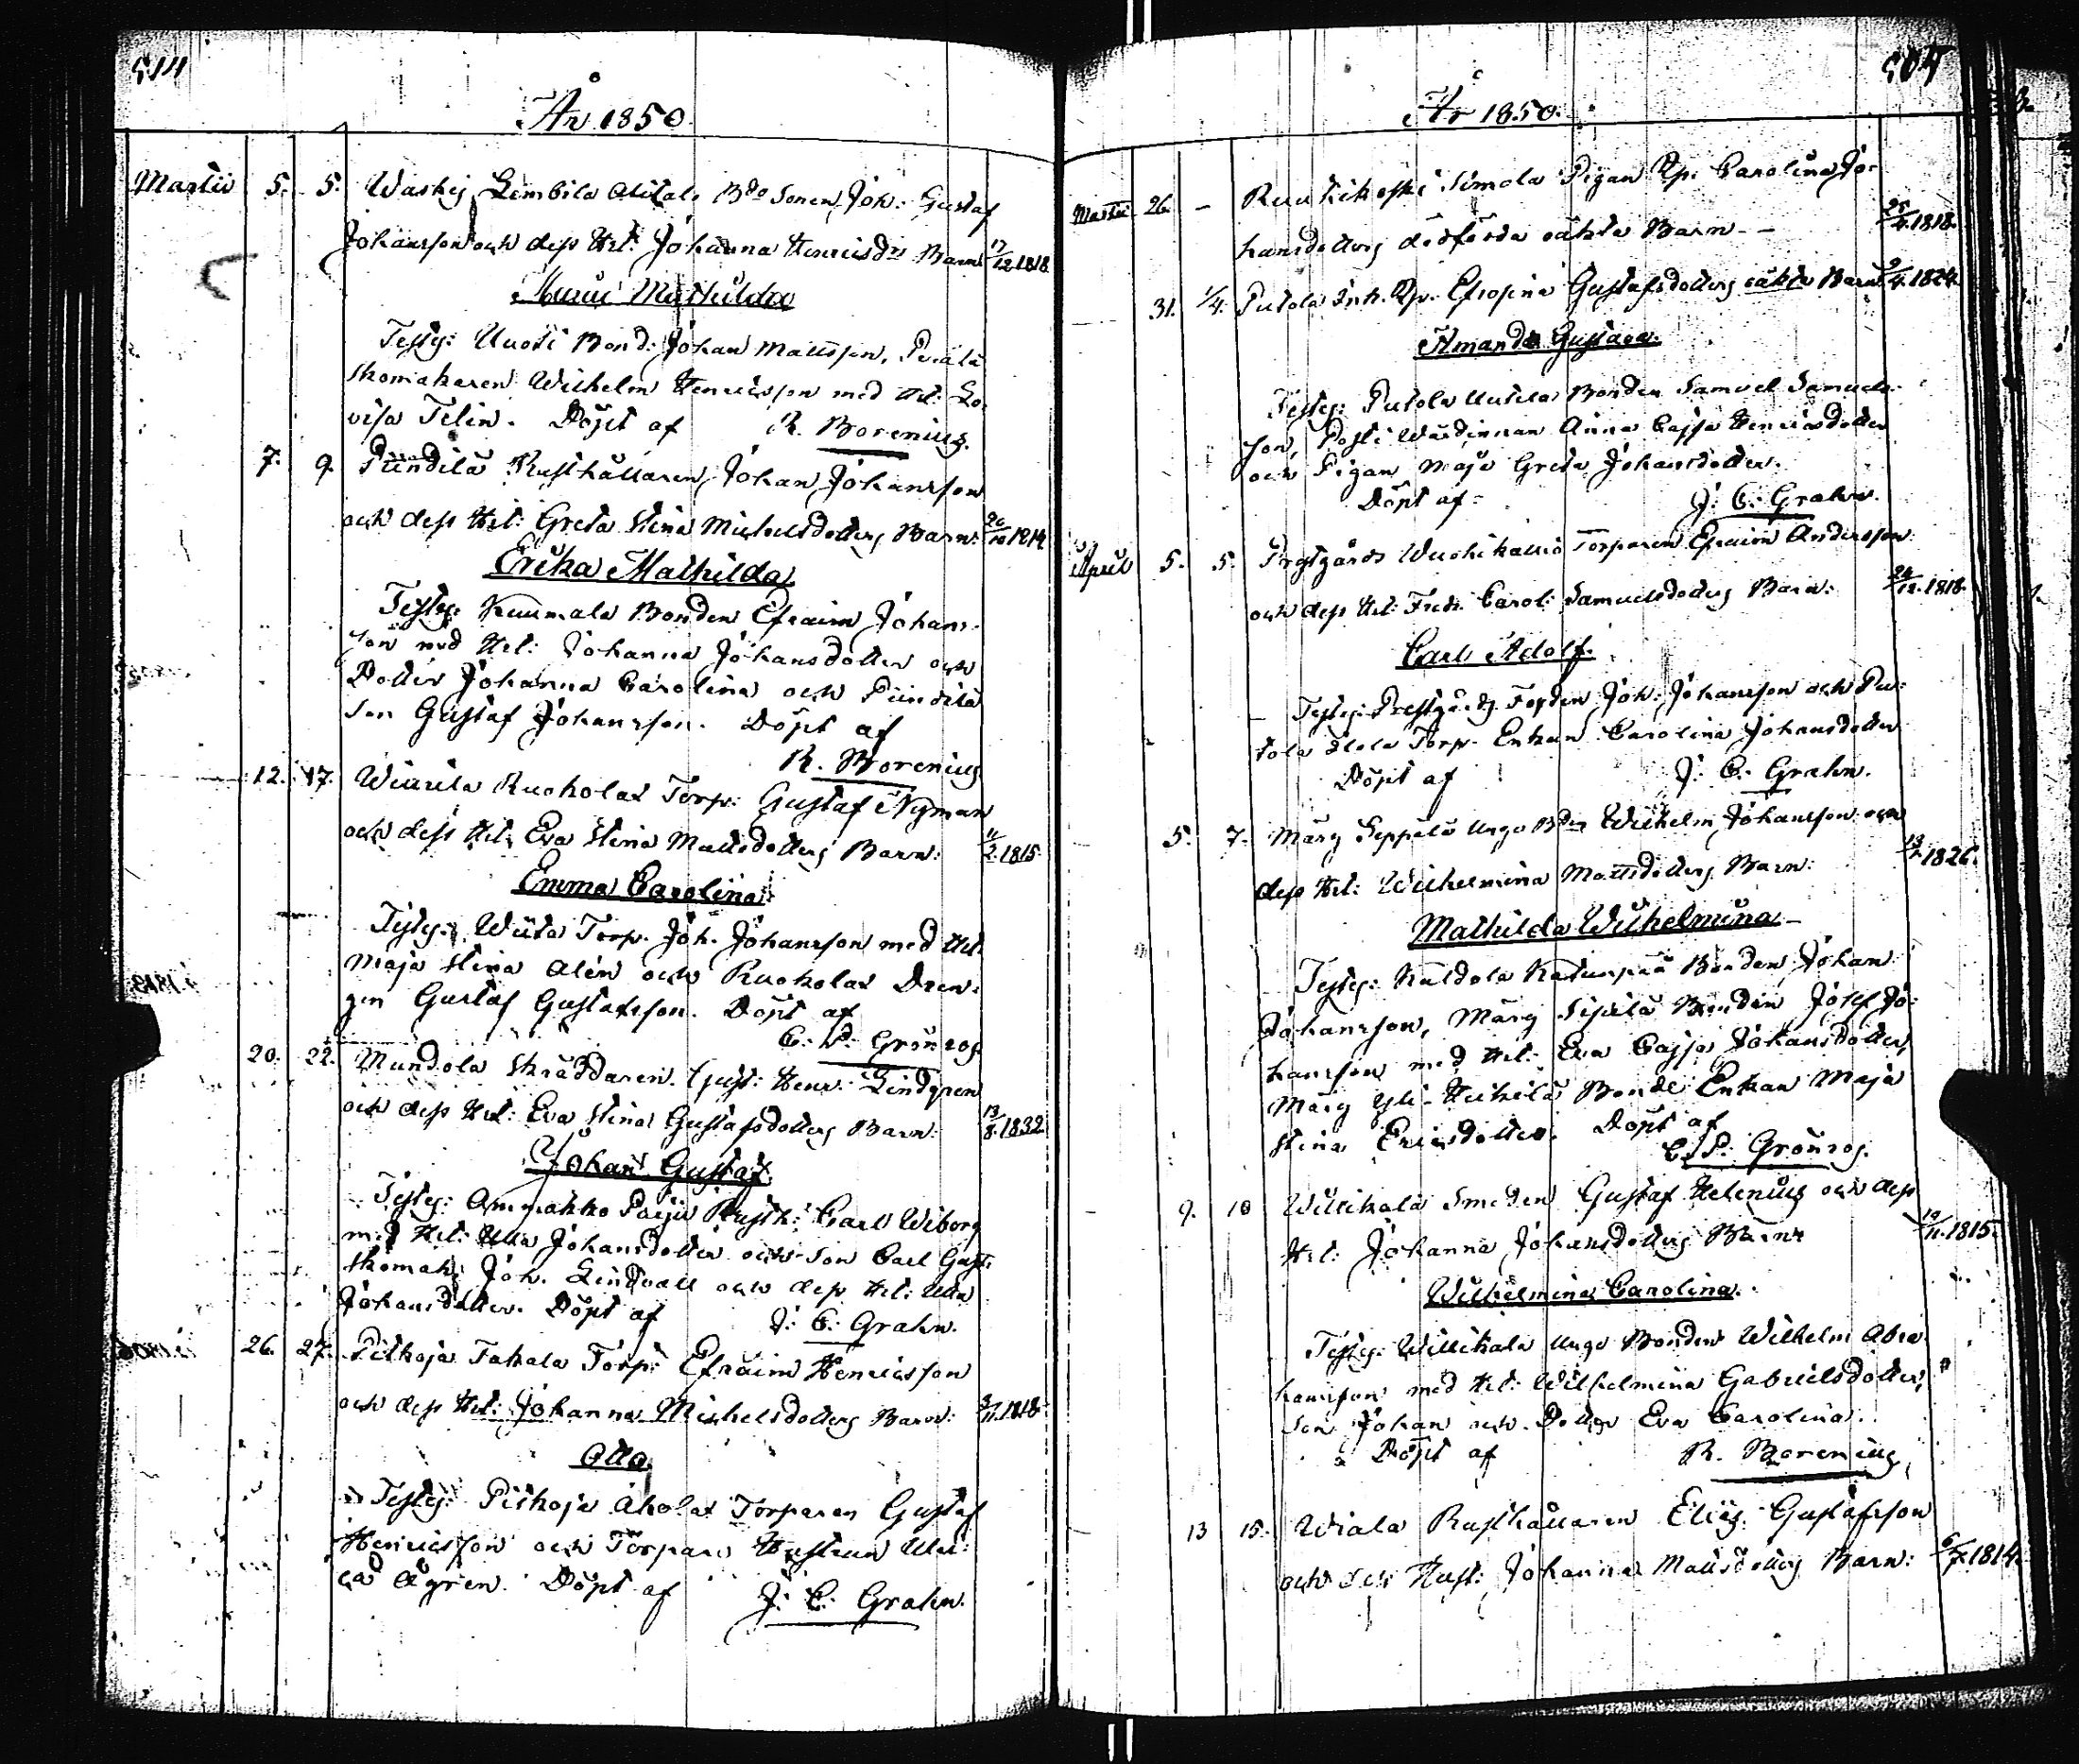 514
År 1850.
Martii 5. 5. Waskis Lembilä Alitalo Bdo Sonen Joh: Gustaf
Johansson och dess Hst: Johanna Henricsdrs Barn 17/12 1818
Maria Mathilda
Testes: Uusti Bond: Johan Mattsson,
Skomakaren Wilhelm Henricsson med Hst: Lo-
visa Telin. Döpt af R. Borenius.
7. 9. Pundila Rusthållaren Johan Johansson
och dess Hst: Greta Stina Michelsdotters Barn: 1814
Erika Mathilda
Testes: Kuumala Bonden Efraim Johans-
son med Hst: Johanna Johansdotter och
Dotter Johanna Carolina och Pundila
Son Gustaf Johansson. Döpt af
R. Borenius
12. 17. Wiurila Ruohola Torp: Gustaf Nyman
och dess Hst: Eva Stina Mattsdotters Barn: 11/2 1815
Emma Carolina
Testes: Wiita Torp. Joh. Johansson med Hst:
Maja Stina Alén och Ruohola Dren-
gen Gustaf Gustafsson. Döpt af
C. P. Grönros
20. 22. Mundola Skräddaren Gust: Henr: Lindgren
och dess Hst: Eva Stina Gustafsdotters Barn: 13/8 1832
Johan Gustaf
Testes: Ammakko Rusth: Carl Wiborg
med Hst: Ulla Johansdotter och Son Carl Gust:
Skomak: Joh. Lindvall och dess Hst: Ulla
Johansdotter. Döpt af J: C: Grahn.
26. 27. Pitkoja Tahala Torp: Efraim Henricsson
och dess Hst: Johanna Michelsdotters Barn: 1818
Otto
Testes: Pitkoja Ahola Torparen Gustaf
Henricsson och Torpare Hustrun Ulri-
ca Ågren. Döpt af J: C: Grahn.
505
År 1850.
Martii 26. – Ruuhikoski Simola Pigan Carolina Jo-
hansdotters dödfödda oäkta Barn – 1818.
31. 1/4. Putola Inh. Efrosina Gustafsdotters oäkta Barn 1824.
Amanda Gustava.
Testes: Putola Uutela Bonden Samuel Samuels-
son, Posti Wärdinnan Anna Cajsa Henricsdotter
och Pigan Maja Greta Johansdotter.
Döpt af J: C: Grahn.
April 5. 5. Prestgårds Wuohikallio Torparen Efraim Andersson
och dess Hst: Fredr. Carol: Samuelsdotters Barn: 24/12 1818.
Carl Adolf.
Testes: Prestgårds Fogden Joh: Johansson och Pu-
tola Torp. Enkan Carolina Johansdotter
Döpt af J. C. Grahn.
5. 7. Märy Seppälä Unga Bden Wilhelm Johansson och
dess Hst: Wilhelmina Mattsdotters Barn: 1826.
Mathilda Wilhelmina
Testes: Kaldola Bonden Johan
Johansson, Märy Sipilä Bonden Josef Jo-
hansson med Hst: Eva Cajsa Johansdotter,
Märy Yli-Heikilä Bonde Enkan Maja
Stina Ericsdotter. Döpt af
C. P. Grönros.
9. 10 Willikala Smeden Gustaf Helenius och dess
Hst: Johanna Johansdotters Barn 19/11 1815.
Wilhelmina Carolina.
Testes: Willikala Unga Bonden Wilhelm Abra-
hamsson med Hst: Wilhelmina Gabrielsdotter,
Son Johan och Dotter Eva Carolina.
Döpt af R. Borenius
13 15. Wiala Rusthållaren Elias Gustafsson
och dess Hust: Johanna Mattsdotters Barn: 6/7 1814.